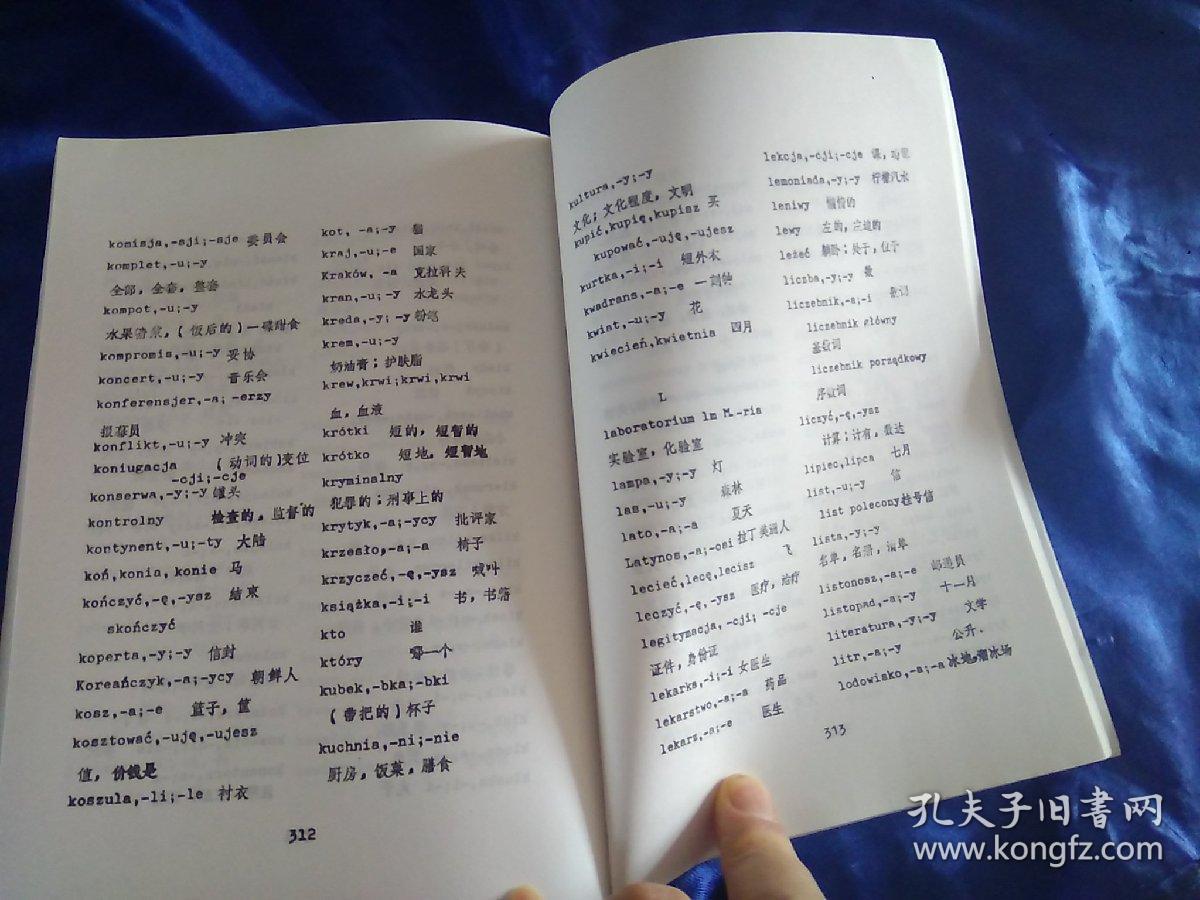 komisja,-sji;-sje 委员会
komplet,-u;-y
全部，全套，整套
kompot,-u;-y
水果羹浆，(饭后的)一碟甜食
kompromis,-u;-y 妥协
koncert,-u;-y 音乐会
konferensjer,-a; -erzy
报幕员
konflikt,-u;-y 冲突
koniugacja (动词的)变位
-cji;-cje
konserwa,-y;-y 罐头
kontrolny 检查的，监督的
kontynent,-u;-ty 大陆
koń,konia,konie 马
kończyć,-ę,-ysz 结束
skończyć
koperta,-y;-y 信封
Koreańczyk,-a;-ycy 朝鲜人
kosz,-a;-e 篮子，筐
kosztować,-uję,-ujesz
值，价钱是
koszula,-li;-le 衬衣
kot, -a;-y 猫
kraj,-u;-e 国家
Kraków, -a 克拉科夫
kran,-u; -y 水龙头
kreda,-y; -y 粉笔
krem,-u;-y
奶油膏；护肤脂
krew,krwi;krwi,krwi
血，血液
krótki 短的，短暂的
krótko 短地，短暂地
kryminalny
犯罪的；刑事上的
krytyk,-a;-ycy 批评家
krzesło,-a;-a 椅子
krzyczeć,-ę,-ysz 喊叫
książka,-i;-i 书，书籍
kto 谁
który 哪一个
kubek,-bka;-bki
(带把的)杯子
kuchnia,-ni;-nie
厨房，饭菜，膳食
312
kultura,-y;-y
文化；文化程度，文明
kupić,kupię,kupisz 买
kupować,-uję,-ujesz
kurtka,-i;-i 短外衣
kwadrans,-a;-e 一刻钟
kwiat,-u;-y 花
kwiecień,kwietnia 四月
L
laboratorium lm M.-ria
实验室，化验室
lampa,-y;-y 灯
las,-u;-y 森林
lato,-a;-a 夏天
Latynos,-a;-osi 拉丁美洲人
lecieć,lecę,lecisz 飞
leczyć,-ę,-ysz 医疗，治疗
legitymacja, -cji; -cje
证件，身份证
lekarka,-i;-i 女医生
lekarstwo,-a;-a 药品
lekarz,-a;-e 医生
lekcja,-cji;-cje 课，功课
lemoniada,-y;-y 柠檬汽水
leniwy 懒惰的
lewy 左的，左边的
leżeć 躺卧；处于，位于
liczba,-y;-y 数
liczebnik,-a;-i 数词
liczebnik główny
基数词
liczebnik porządkowy
序数词
liczyć,-ę,-ysz
计算；计有，数达
lipiec,lipca 七月
list,-u;-y 信
list polecony 挂号信
lista,-y;-y
名单，名册，清单
listonosz,-a;-e 邮递员
listopad,-a;-y 十一月
literatura,-y;-y 文学
litr,-a;-y 公升.
lodowisko,-a;-a 冰地，溜冰场
313
孔夫子旧书网
www.kongfz.com